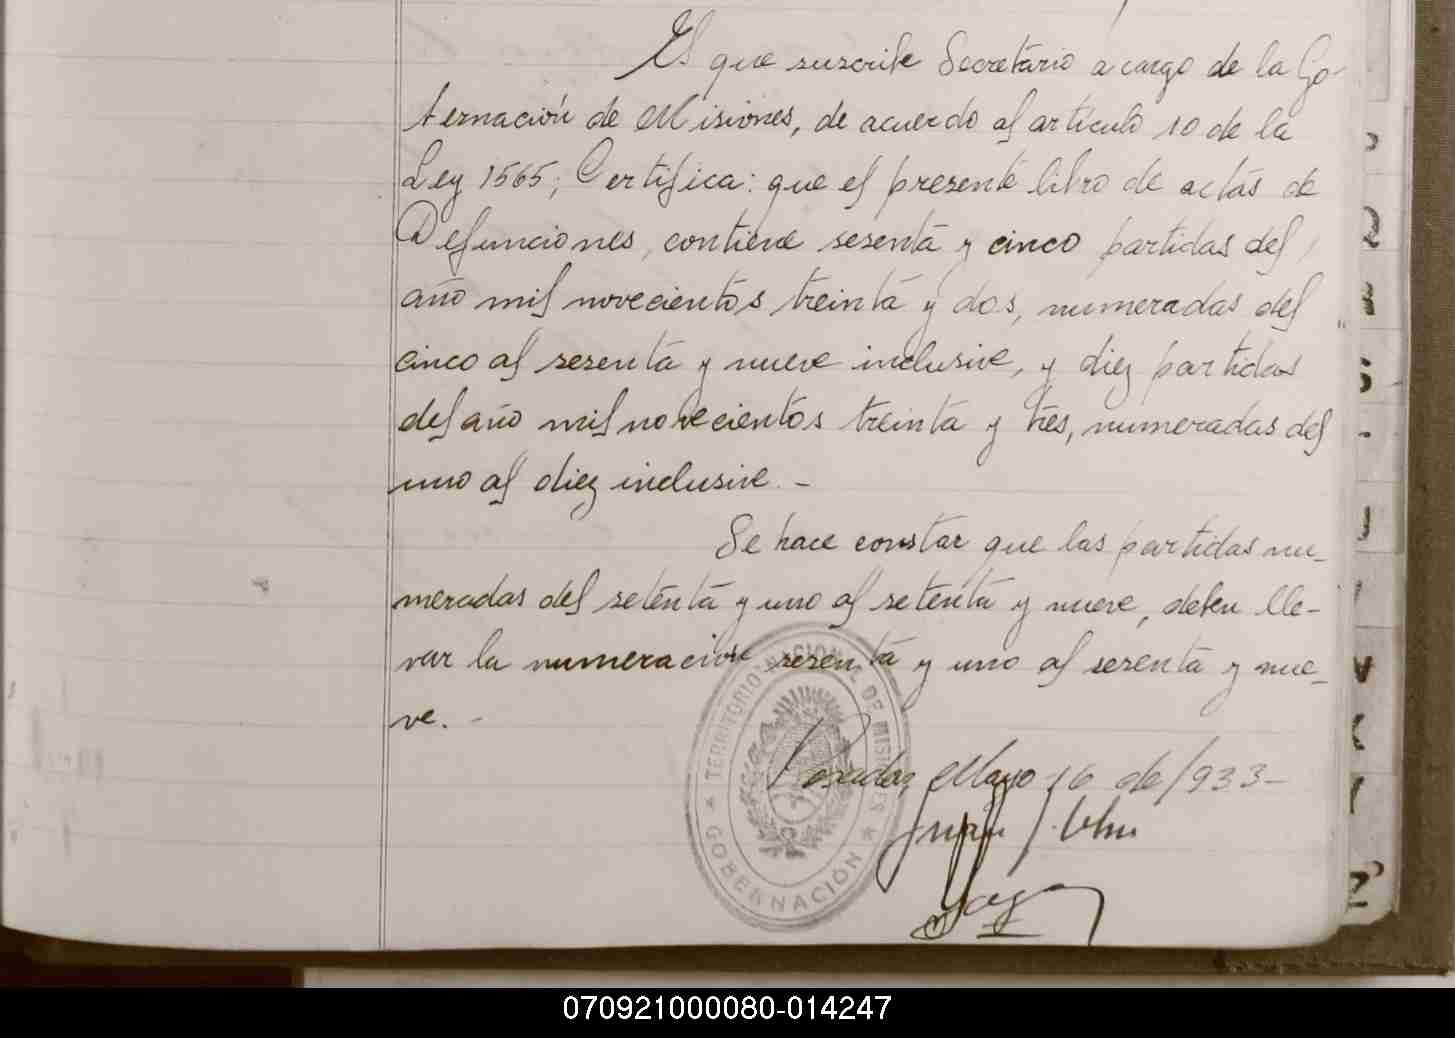 El que suscribe Secretario a cargo de la Go-
bernación de Misiones, de acuerdo al artículo 10 de la
Ley 1565; Certifica: que el presente libro de actas de
Defunciones, contiene sesenta y cinco partidas del
año mil novecientos treinta y dos, numeradas del
cinco al sesenta y nueve inclusive, y diez partidas
del año mil novecientos treinta y tres, numeradas del
uno al diez inclusive. -
Se hace constar que las partidas nu-
meradas del setenta y uno al setenta y nueve, deben lle-
var la numeración sesenta y uno al sesenta y nue-
ve. -
Posadas, Mayo 16 de 1933-
TERRITORIO NACIONAL DE MISIONES
GOBERNACIÓN
070921000080-014247